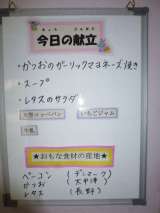 今日の献立
・かつおのガーリックマヨネーズ焼き
・スープ
・レタスのサラダ
いちごジャム
牛乳
★おもな食材の産地★
ベーコン (デンマーク)
かつお (太平洋)
レタス (長野)